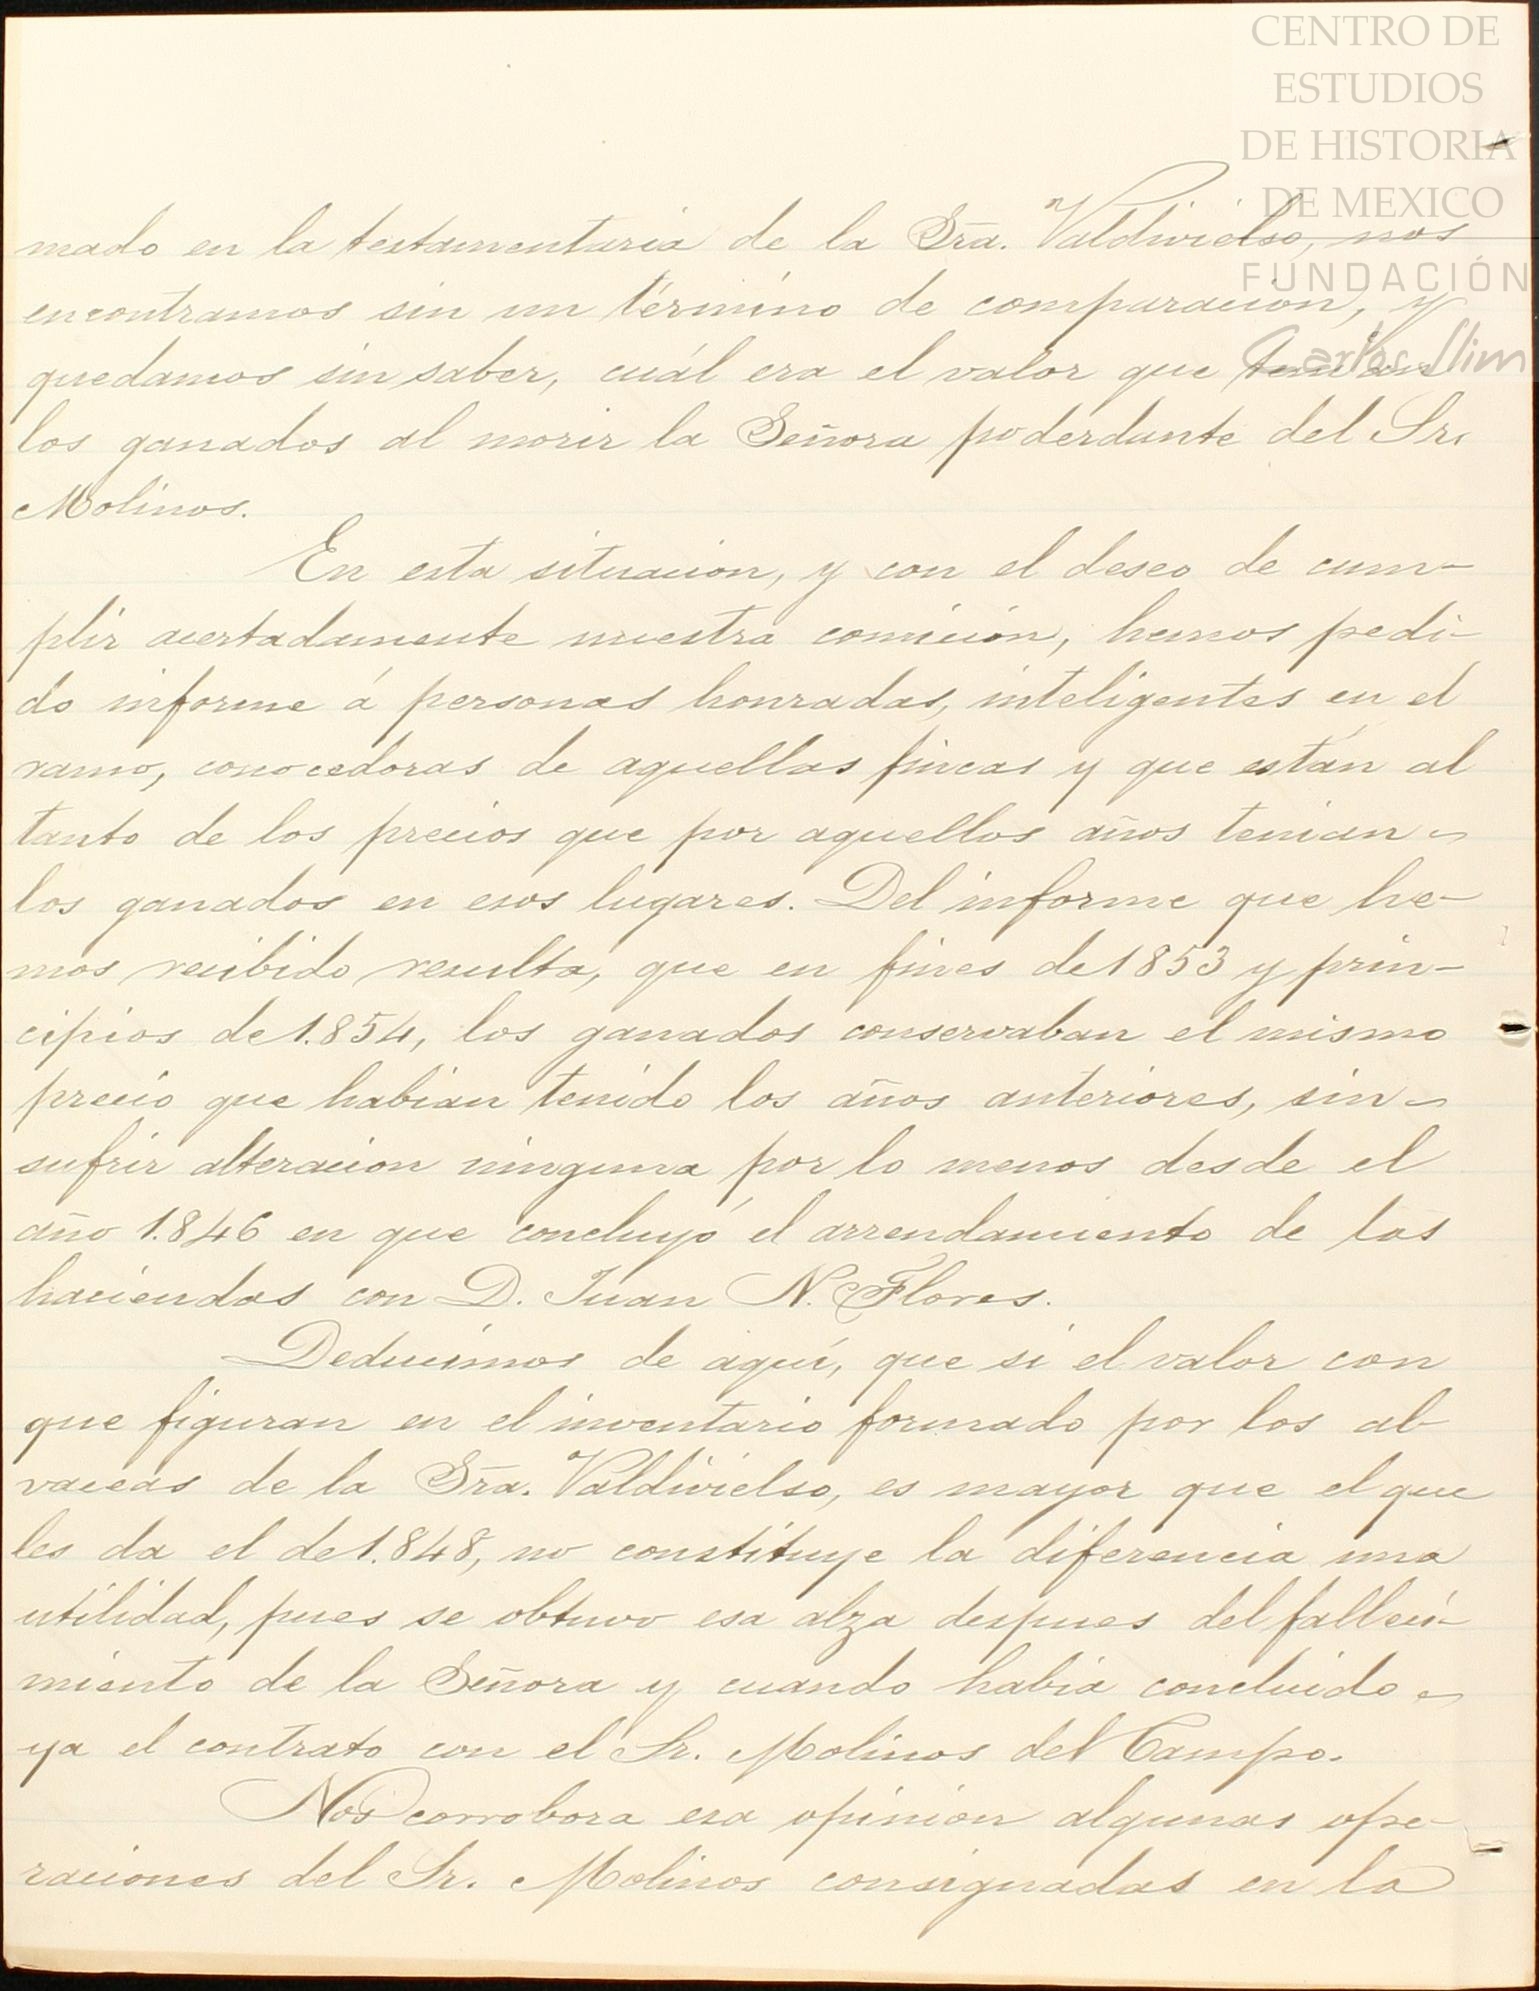 CENTRO DE
ESTUDIOS
DE HISTORIA
DE MEXICO
FUNDACIÓN
Carlos Slim
mado en la testamentaria de la Sra. Valdivielso, nos
encontramos sin un término de comparacion, y
quedamos sin saber, cuál era el valor que tenian
los ganados al morir la Señora poderdante del Sr.
Molinos.
En esta situacion, y con el deseo de cum-
plir acertadamente nuestra comición, hemos pedi-
do informe á personas honradas, inteligentes en el
ramo, conocedoras de aquellas fincas y que están al
tanto de los precios que por aquellos años tenian
los ganados en esos lugares. Del informe que he-
mos recibido resulta, que en fines de 1853 y prin-
cipios de 1.854, los ganados conservaban el mismo
precio que habian tenido los años anteriores, sin
sufrir alteracion ninguna por lo menos desde el
año 1.846 en que concluyó el arrendamiento de las
haciendas con D. Juan N. Flores.
Deducimos de aquí, que si el valor con
que figuran en el inventario formado por los al-
vaceas de la Sra. Valdivielso, es mayor que el que
les da el de 1.848, no constituye la diferencia una
utilidad, pues se obtuvo esa alza despues del falleci-
miento de la Señora y cuando habia concluido
ya el contrato con el Sr. Molinos del Campo.
Nos corrobora esa opinion algunas ope-
raciones del Sr. Molinos consignadas en la